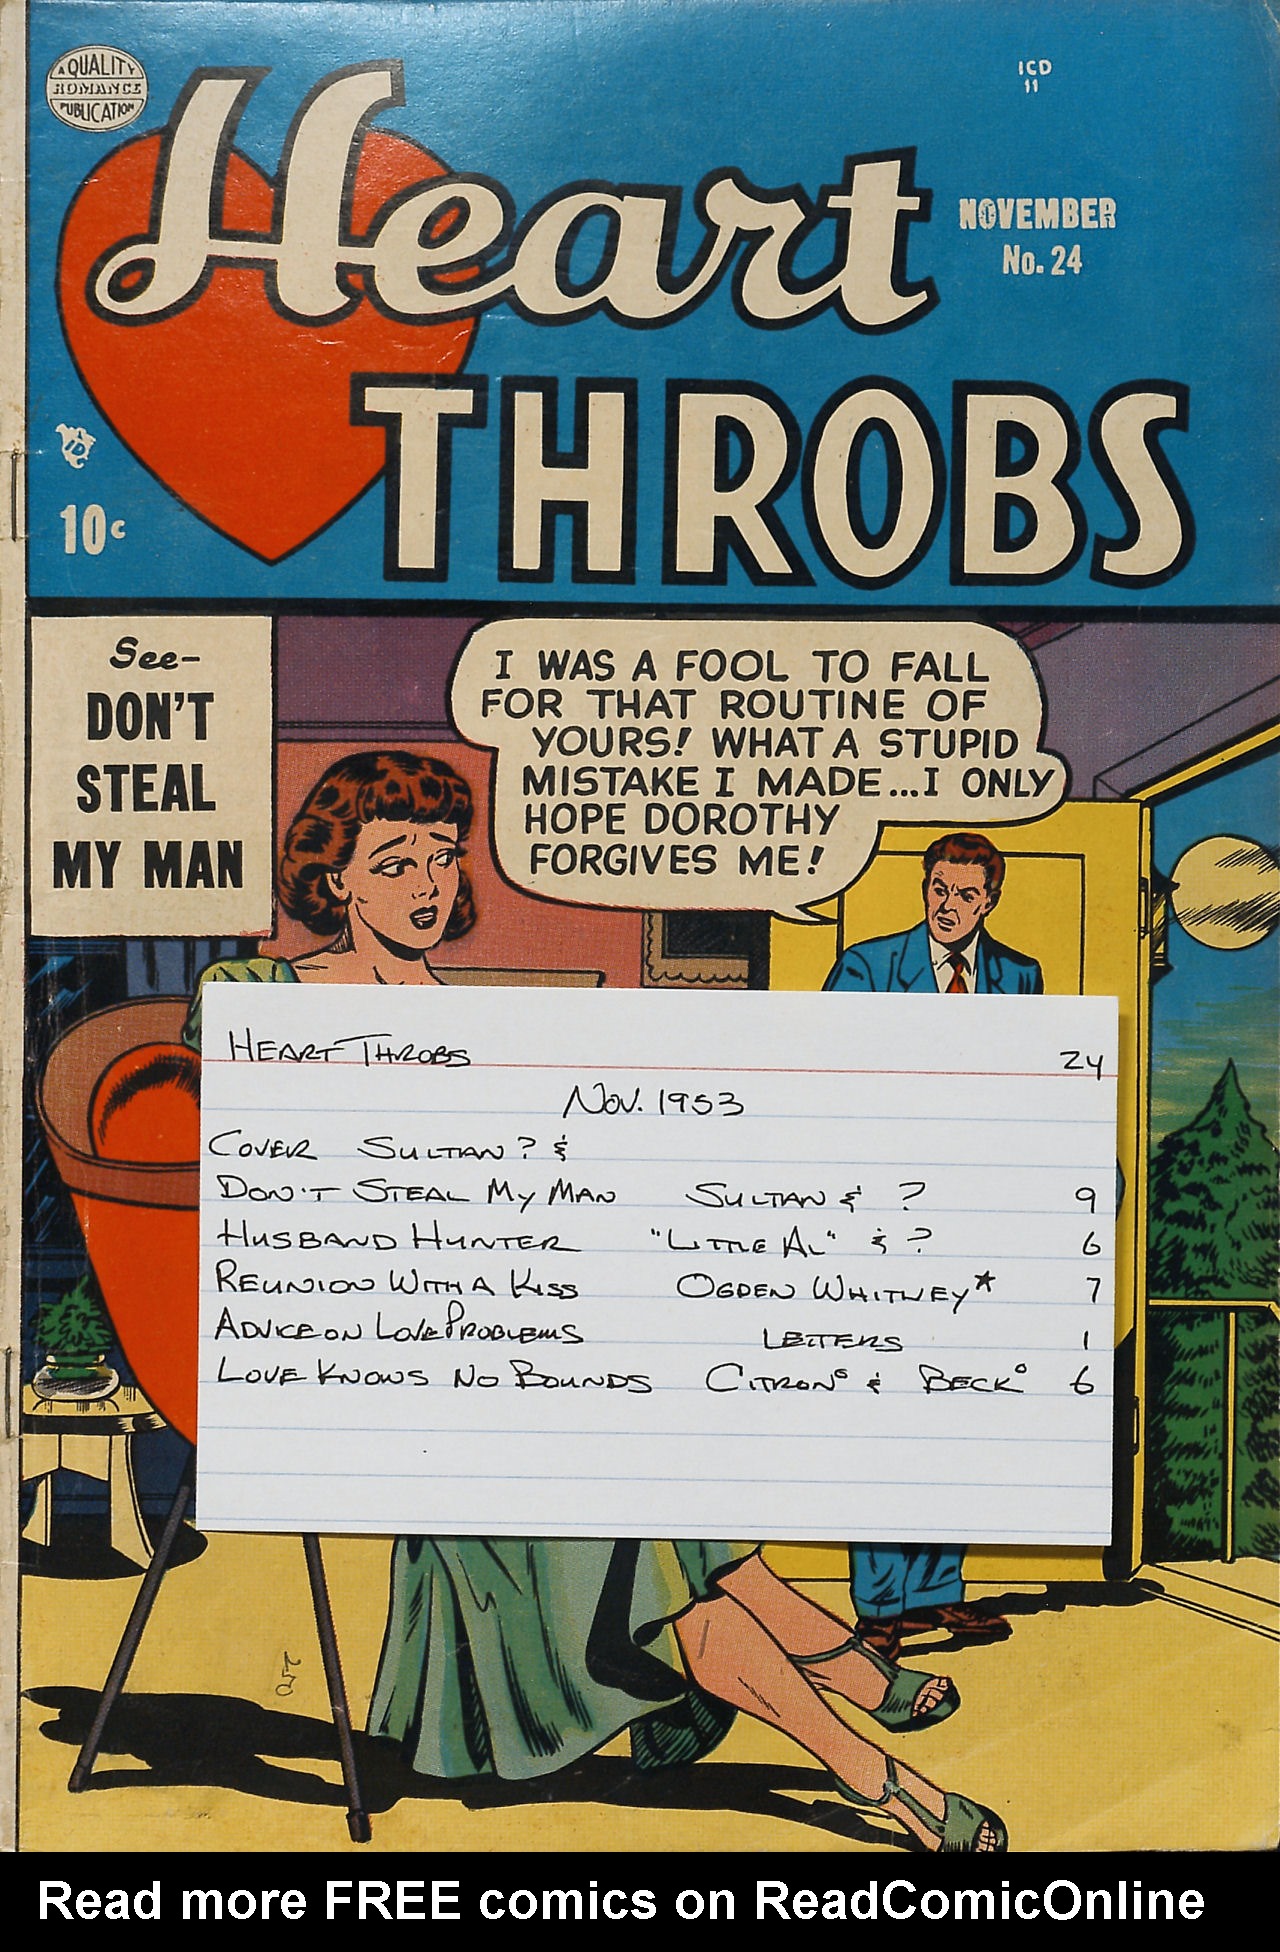 A QUALITY
ROMANCE
PUBLICATION
ICD
11
Heart
THROBS
NOVEMBER
No. 24
ID
10c
See-
DON'T
STEAL
MY MAN
I WAS A FOOL TO FALL
FOR THAT ROUTINE OF
YOURS! WHAT A STUPID
MISTAKE I MADE...I ONLY
HOPE DOROTHY
FORGIVES ME!
HEART THROBS 24
NOV. 1953
COVER SULTAN? &
DON'T STEAL MY MAN SULTAN & ? 9
HUSBAND HUNTER "LITTLE AL" & ? 6
REUNION WITH A KISS OGDEN WHITNEY* 7
ADVICE ON LOVE PROBLEMS LETTERS 1
LOVE KNOWS NO BOUNDS CITRON° & BECK° 6
Read more FREE comics on ReadComicOnline